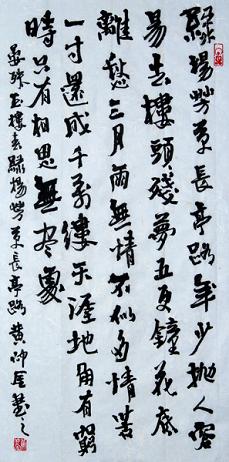 綠楊芳草長亭路年少拋人容
易去樓頭殘夢五更鐘花底
離愁三月雨無情不似多情苦
一寸還成千萬縷天涯地角有窮
時只有相思無盡處
晏殊玉樓春綠楊芳草長亭路黃帥